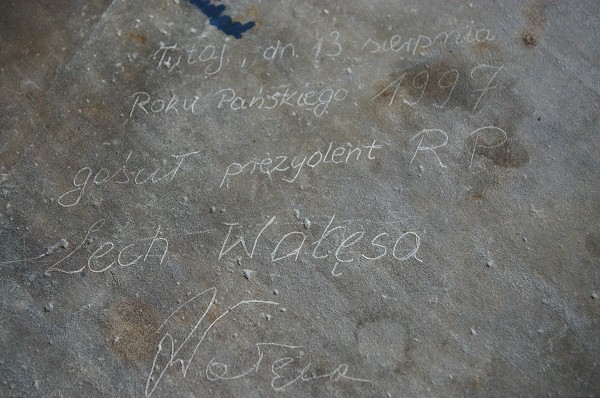 Tutaj, dn. 13 sierpnia
Roku Pańskiego 1997
gościł prezydent RP
Lech Wałęsa
Wałęsa